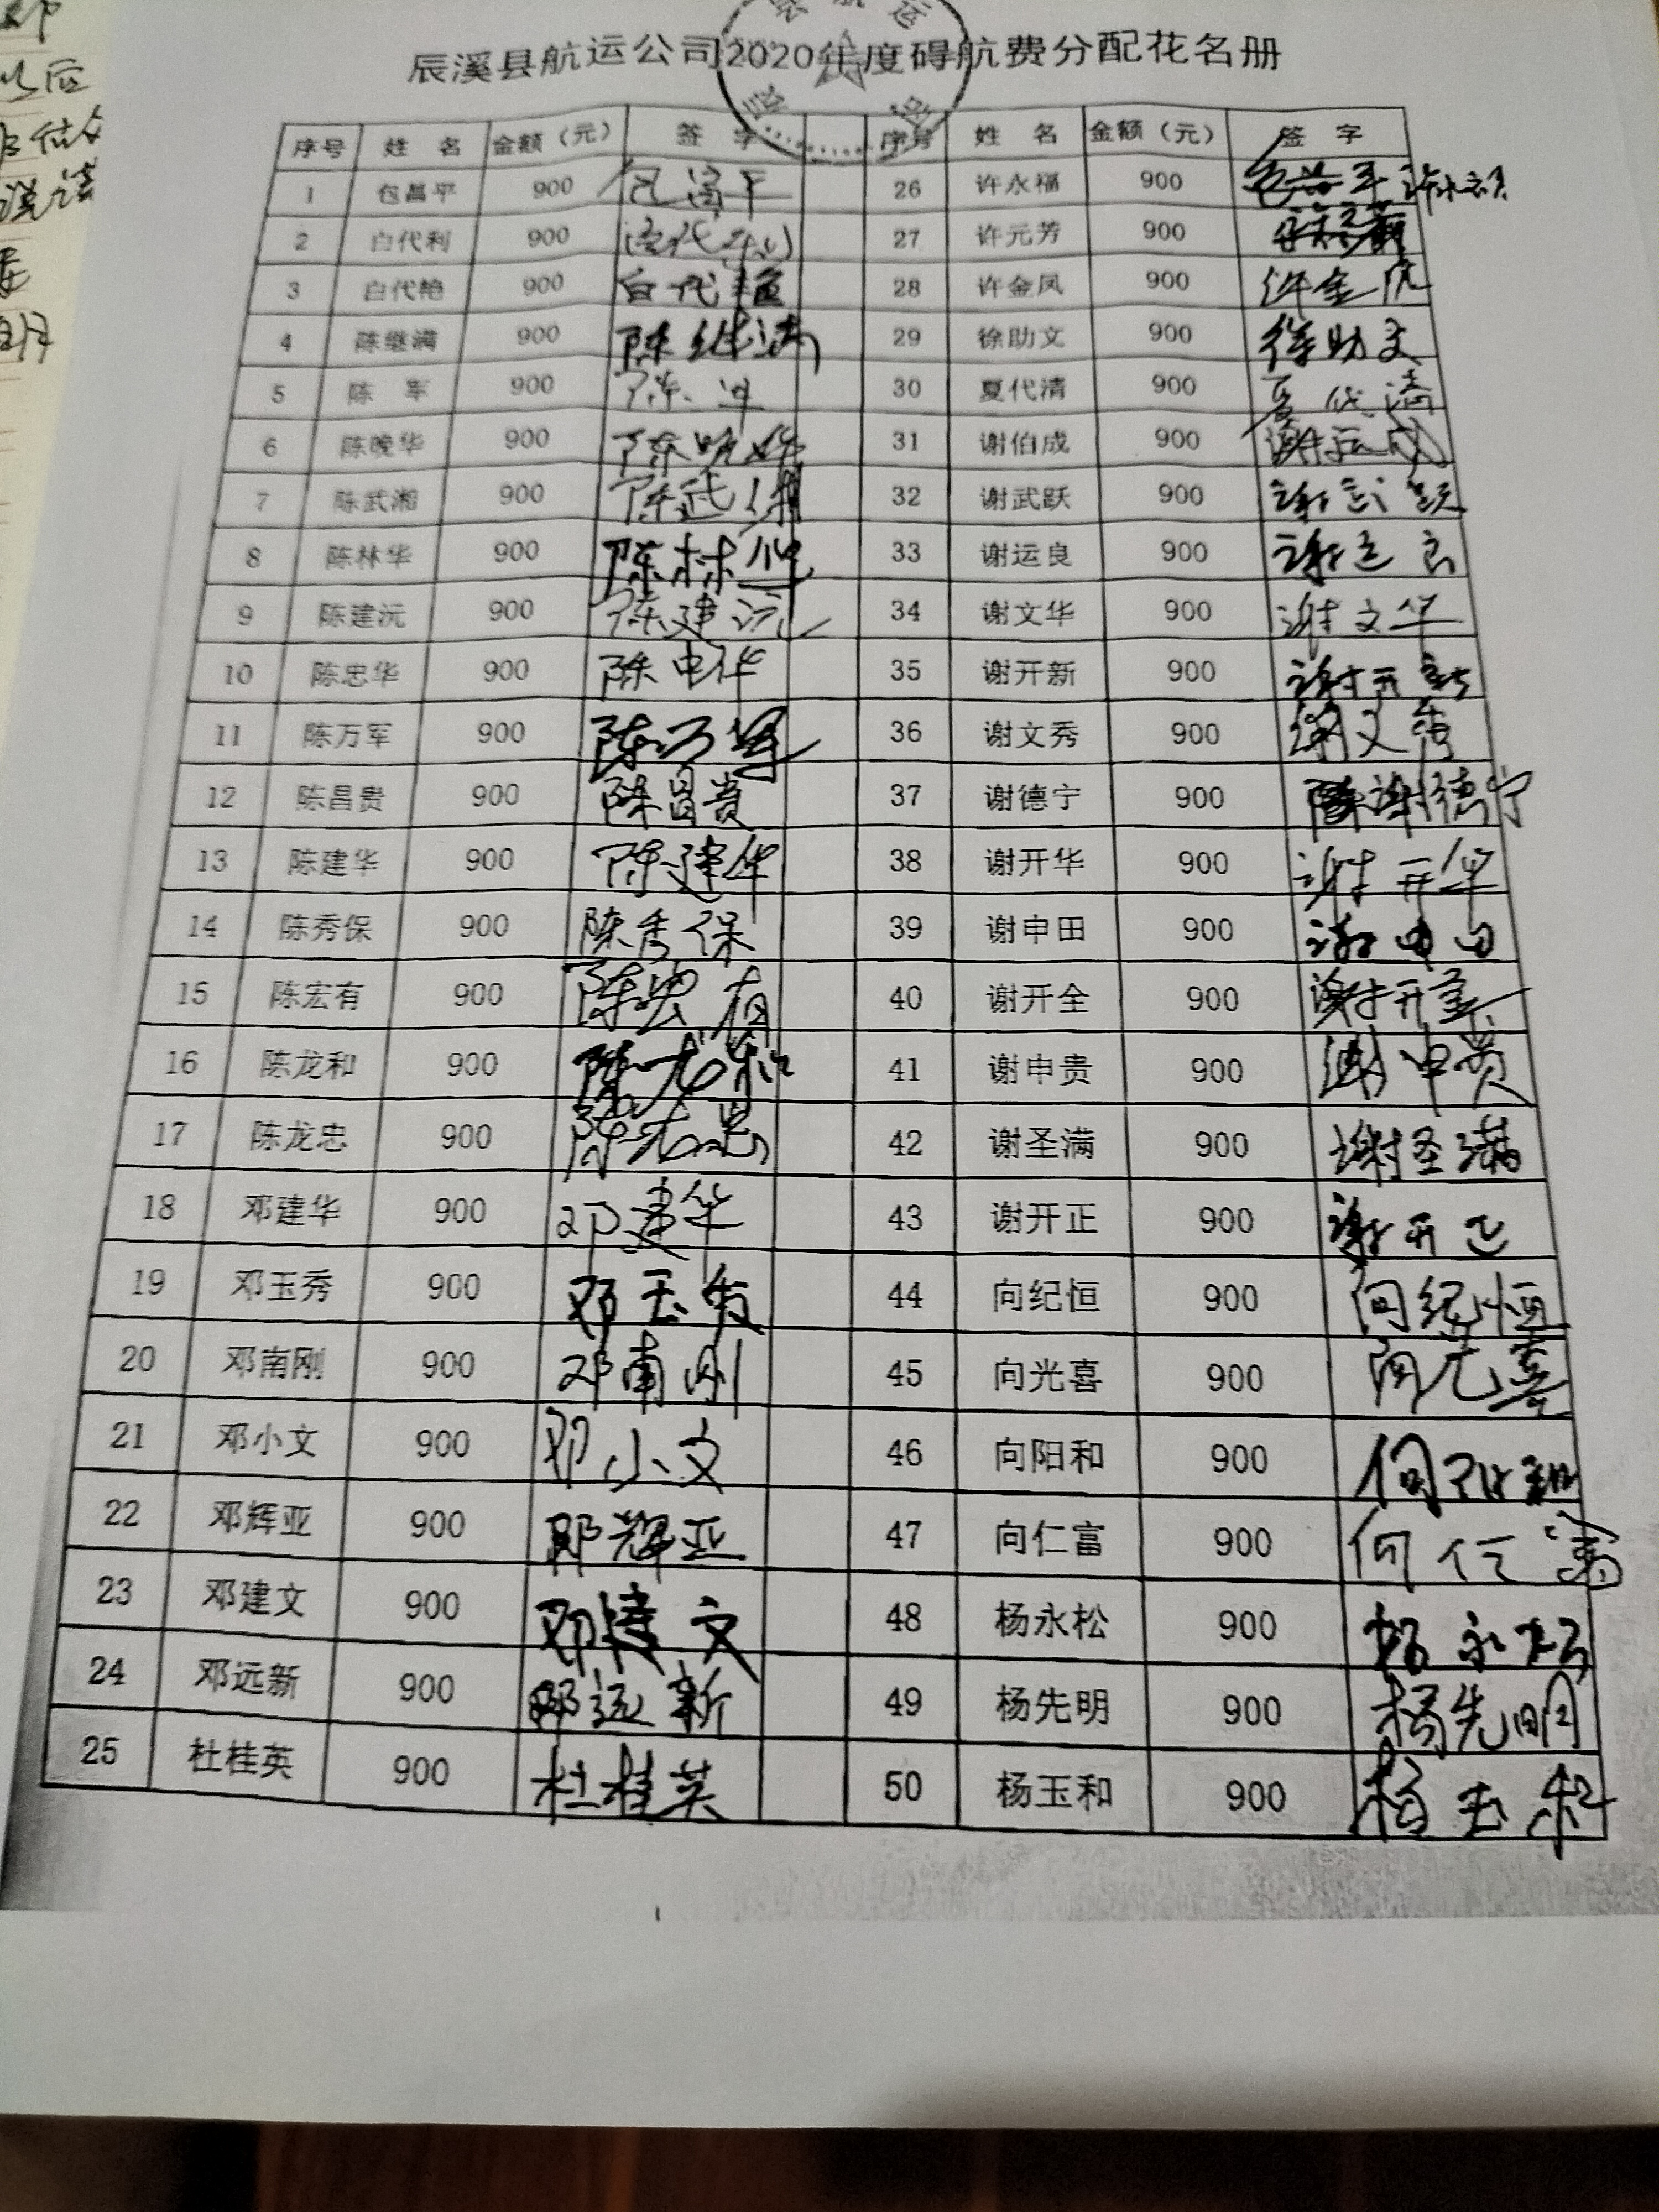 辰溪县航运公司2020年度碍航费分配花名册
序号 姓 名 金额（元） 签 字 序号 姓 名 金额（元） 签 字
1 包昌平 900 26 许永福 900
2 白代利 900 白代利 27 许元芳 900
3 白代艳 900 白代艳 28 许金凤 900 许金凤
4 陈继满 900 陈继满 29 徐助文 900 徐助文
5 陈 军 900 陈军 30 夏代清 900 夏代清
6 陈晚华 900 陈晚华 31 谢伯成 900
7 陈武湘 900 陈武湘 32 谢武跃 900 谢武跃
8 陈林华 900 陈林华 33 谢运良 900 谢运良
9 陈建沅 900 陈建沅 34 谢文华 900 谢文华
10 陈忠华 900 35 谢开新 900 谢开新
11 陈万军 900 陈万军 36 谢文秀 900 谢文秀
12 陈昌贵 900 陈昌贵 37 谢德宁 900 谢德宁
13 陈建华 900 陈建华 38 谢开华 900 谢开华
14 陈秀保 900 陈秀保 39 谢申田 900 谢申田
15 陈宏有 900 陈宏有 40 谢开全 900 谢开全
16 陈龙和 900 陈龙和 41 谢申贵 900 谢申贵
17 陈龙忠 900 陈龙忠 42 谢圣满 900 谢圣满
18 邓建华 900 邓建华 43 谢开正 900 谢开正
19 邓玉秀 900 邓玉秀 44 向纪恒 900 向纪恒
20 邓南刚 900 邓南刚 45 向光喜 900 向光喜
21 邓小文 900 邓小文 46 向阳和 900 向阳和
22 邓辉亚 900 邓辉亚 47 向仁富 900
23 邓建文 900 邓建文 48 杨永松 900 杨永松
24 邓远新 900 邓远新 49 杨先明 900 杨先明
25 杜桂英 900 杜桂英 50 杨玉和 900 杨玉和